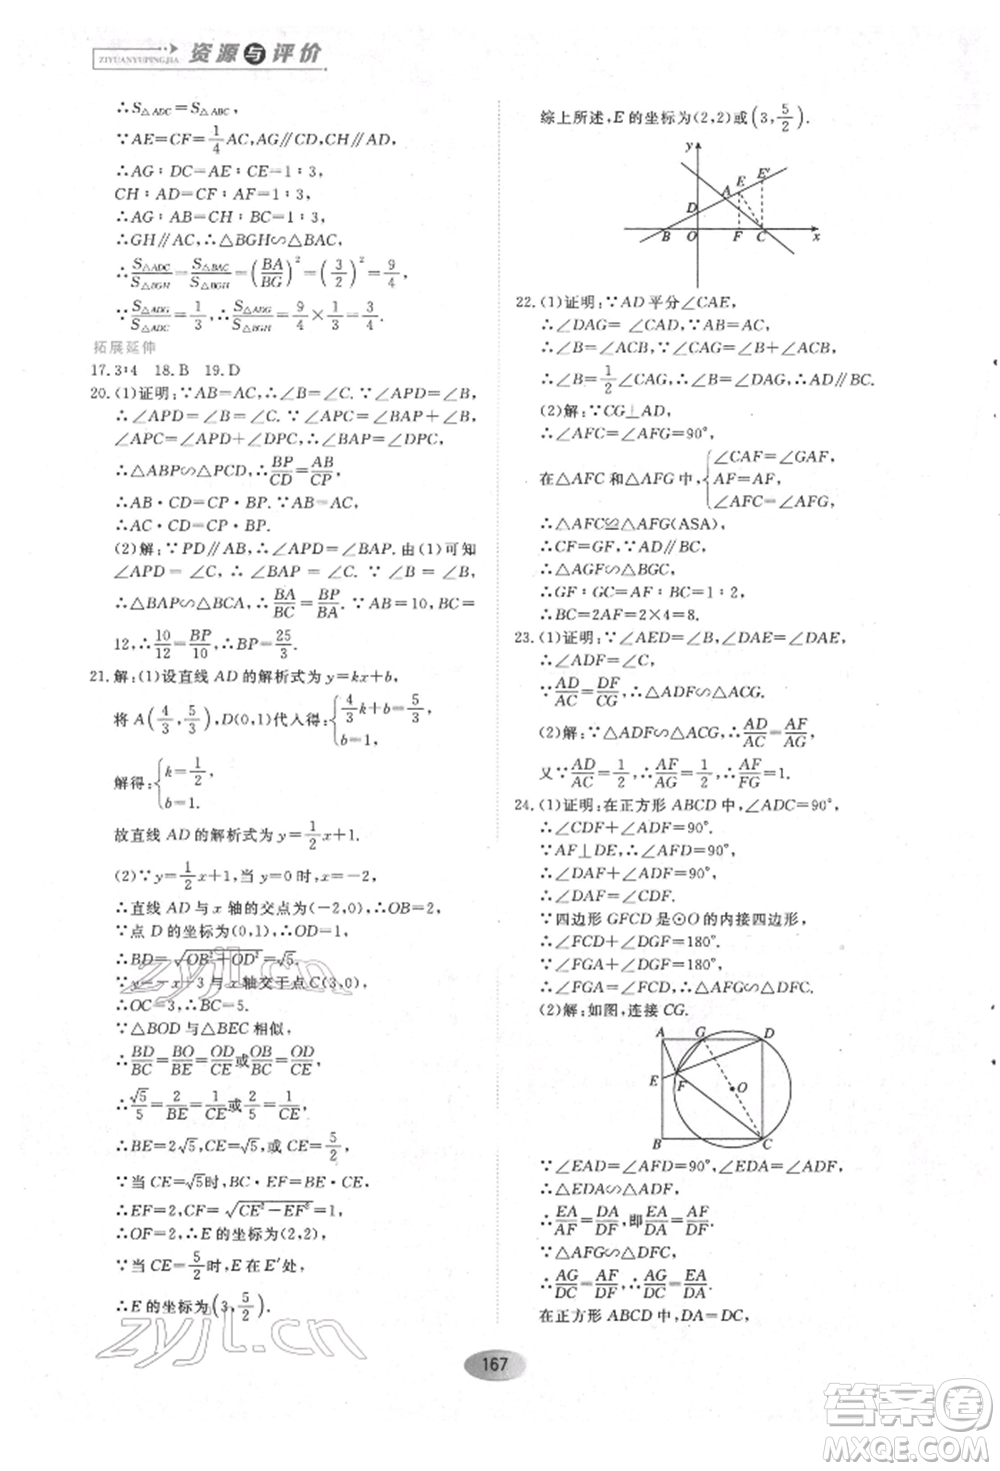 ZIYUANYUPINGJIA 资源与评价
∴S△ADC=S△ABC,
∵AE=CF=1/4AC,AG∥CD,CH∥AD,
∴AG∶DC=AE∶CE=1∶3,
CH∶AD=CF∶AF=1∶3,
∴AG∶AB=CH∶BC=1∶3,
∴GH∥AC,∴△BGH∽△BAC,
∴S△ADC/S△BGH=S△BAC/S△BGH=(BA/BG)²=(3/2)²=9/4,
∵S△ADG/S△ADC=1/3,∴S△ADG/S△BGH=9/4×1/3=3/4.
拓展延伸
17.3∶4 18.B 19.D
20.(1)证明:∵AB=AC,∴∠B=∠C.∵∠APD=∠B,
∴∠APD=∠B=∠C.∵∠APC=∠BAP+∠B,
∠APC=∠APD+∠DPC,∴∠BAP=∠DPC,
∴△ABP∽△PCD,∴BP/CD=AB/CP,
∴AB·CD=CP·BP.∵AB=AC,
∴AC·CD=CP·BP.
(2)解:∵PD∥AB,∴∠APD=∠BAP.由(1)可知
∠APD=∠C,∴∠BAP=∠C.∵∠B=∠B,
∴△BAP∽△BCA,∴BA/BC=BP/BA.∵AB=10,BC=
12,∴10/12=BP/10,∴BP=25/3.
21.解:(1)设直线AD的解析式为y=kx+b,
将A(4/3,5/3),D(0,1)代入得:{4/3k+b=5/3, b=1,
解得:{k=1/2, b=1.
故直线AD的解析式为y=1/2x+1.
(2)∵y=1/2x+1,当y=0时,x=-2,
∴直线AD与x轴的交点为(-2,0),∴OB=2,
∵点D的坐标为(0,1),∴OD=1,
∴BD=√(OB²+OD²)=√5.
∵y=-x+3与x轴交于点C(3,0),
∴OC=3,∴BC=5.
∵△BOD与△BEC相似,
∴BD/BC=BO/BE=OD/CE或OB/BC=OD/CE,
∴√5/5=2/BE=1/CE或2/5=1/CE,
∴BE=2√5,CE=√5,或CE=5/2,
∵当CE=√5时,BC·EF=BE·CE,
∴EF=2,CF=√(CE²-EF²)=1,
∴OF=2,∴E的坐标为(2,2),
∵当CE=5/2时,E在E′处,
∴E的坐标为(3,5/2).
综上所述,E的坐标为(2,2)或(3,5/2).
y
A E E′
D
B O F C x
22.(1)证明:∵AD平分∠CAE,
∴∠DAG=∠CAD,∵∠B=∠BAG,
∴∠B=∠CAD,
∴∠B=1/2∠CAE,∴AD∥BC.
(2)解:∵CG⊥AD,
∴∠AFC=∠AFG=90°,
在△AFC和△AFG中,{∠CAF=∠GAF, AF=AF, ∠AFC=∠AFG,
∴△AFC≌△AFG(ASA)
∴CF=GF,∵AD∥BC,
∴△AGF∽△BGC,
∴GF∶GC=AF∶BC=1∶2,
∴BC=2AF=2×4=8.
23.(1)证明:∵∠AED=∠B,∠DAE=∠DAE,
∴∠ADF=∠C,
∵AD/AC=DF/CG,∴△ADF∽△ACG.
(2)解:∵△ADF∽△ACG,∴AD/AC=AF/AG,
又∵AD/AC=1/2,∴AF/AG=1/2,∴AF/FG=1.
24.(1)证明:在正方形ABCD中,∠ADC=90°,
∴∠CDF+∠ADF=90°.
∵AF⊥DE,∴∠AFD=90°,
∴∠DAF+∠ADF=90°,
∴∠DAF=∠CDF.
∵四边形GFCD是⊙O的内接四边形,
∴∠FCD+∠DGF=180°.
∵∠FGA+∠DGF=180°,
∴∠FGA=∠FCD,∴△AFG∽△DFC.
(2)解:如图,连接CG.
A G D
E F O
B C
∵∠EAD=∠AFD=90°,∠EDA=∠ADF,
∴△EDA∽△ADF,
∴EA/AF=DA/DF,即EA/DA=AF/DF.
∵△AFG∽△DFC,
∴AG/DC=AF/DF,∴AG/DC=EA/DA,
在正方形ABCD中,DA=DC,
167
zyjl.cn
zyjl.cn
答案圈
MXQE.COM